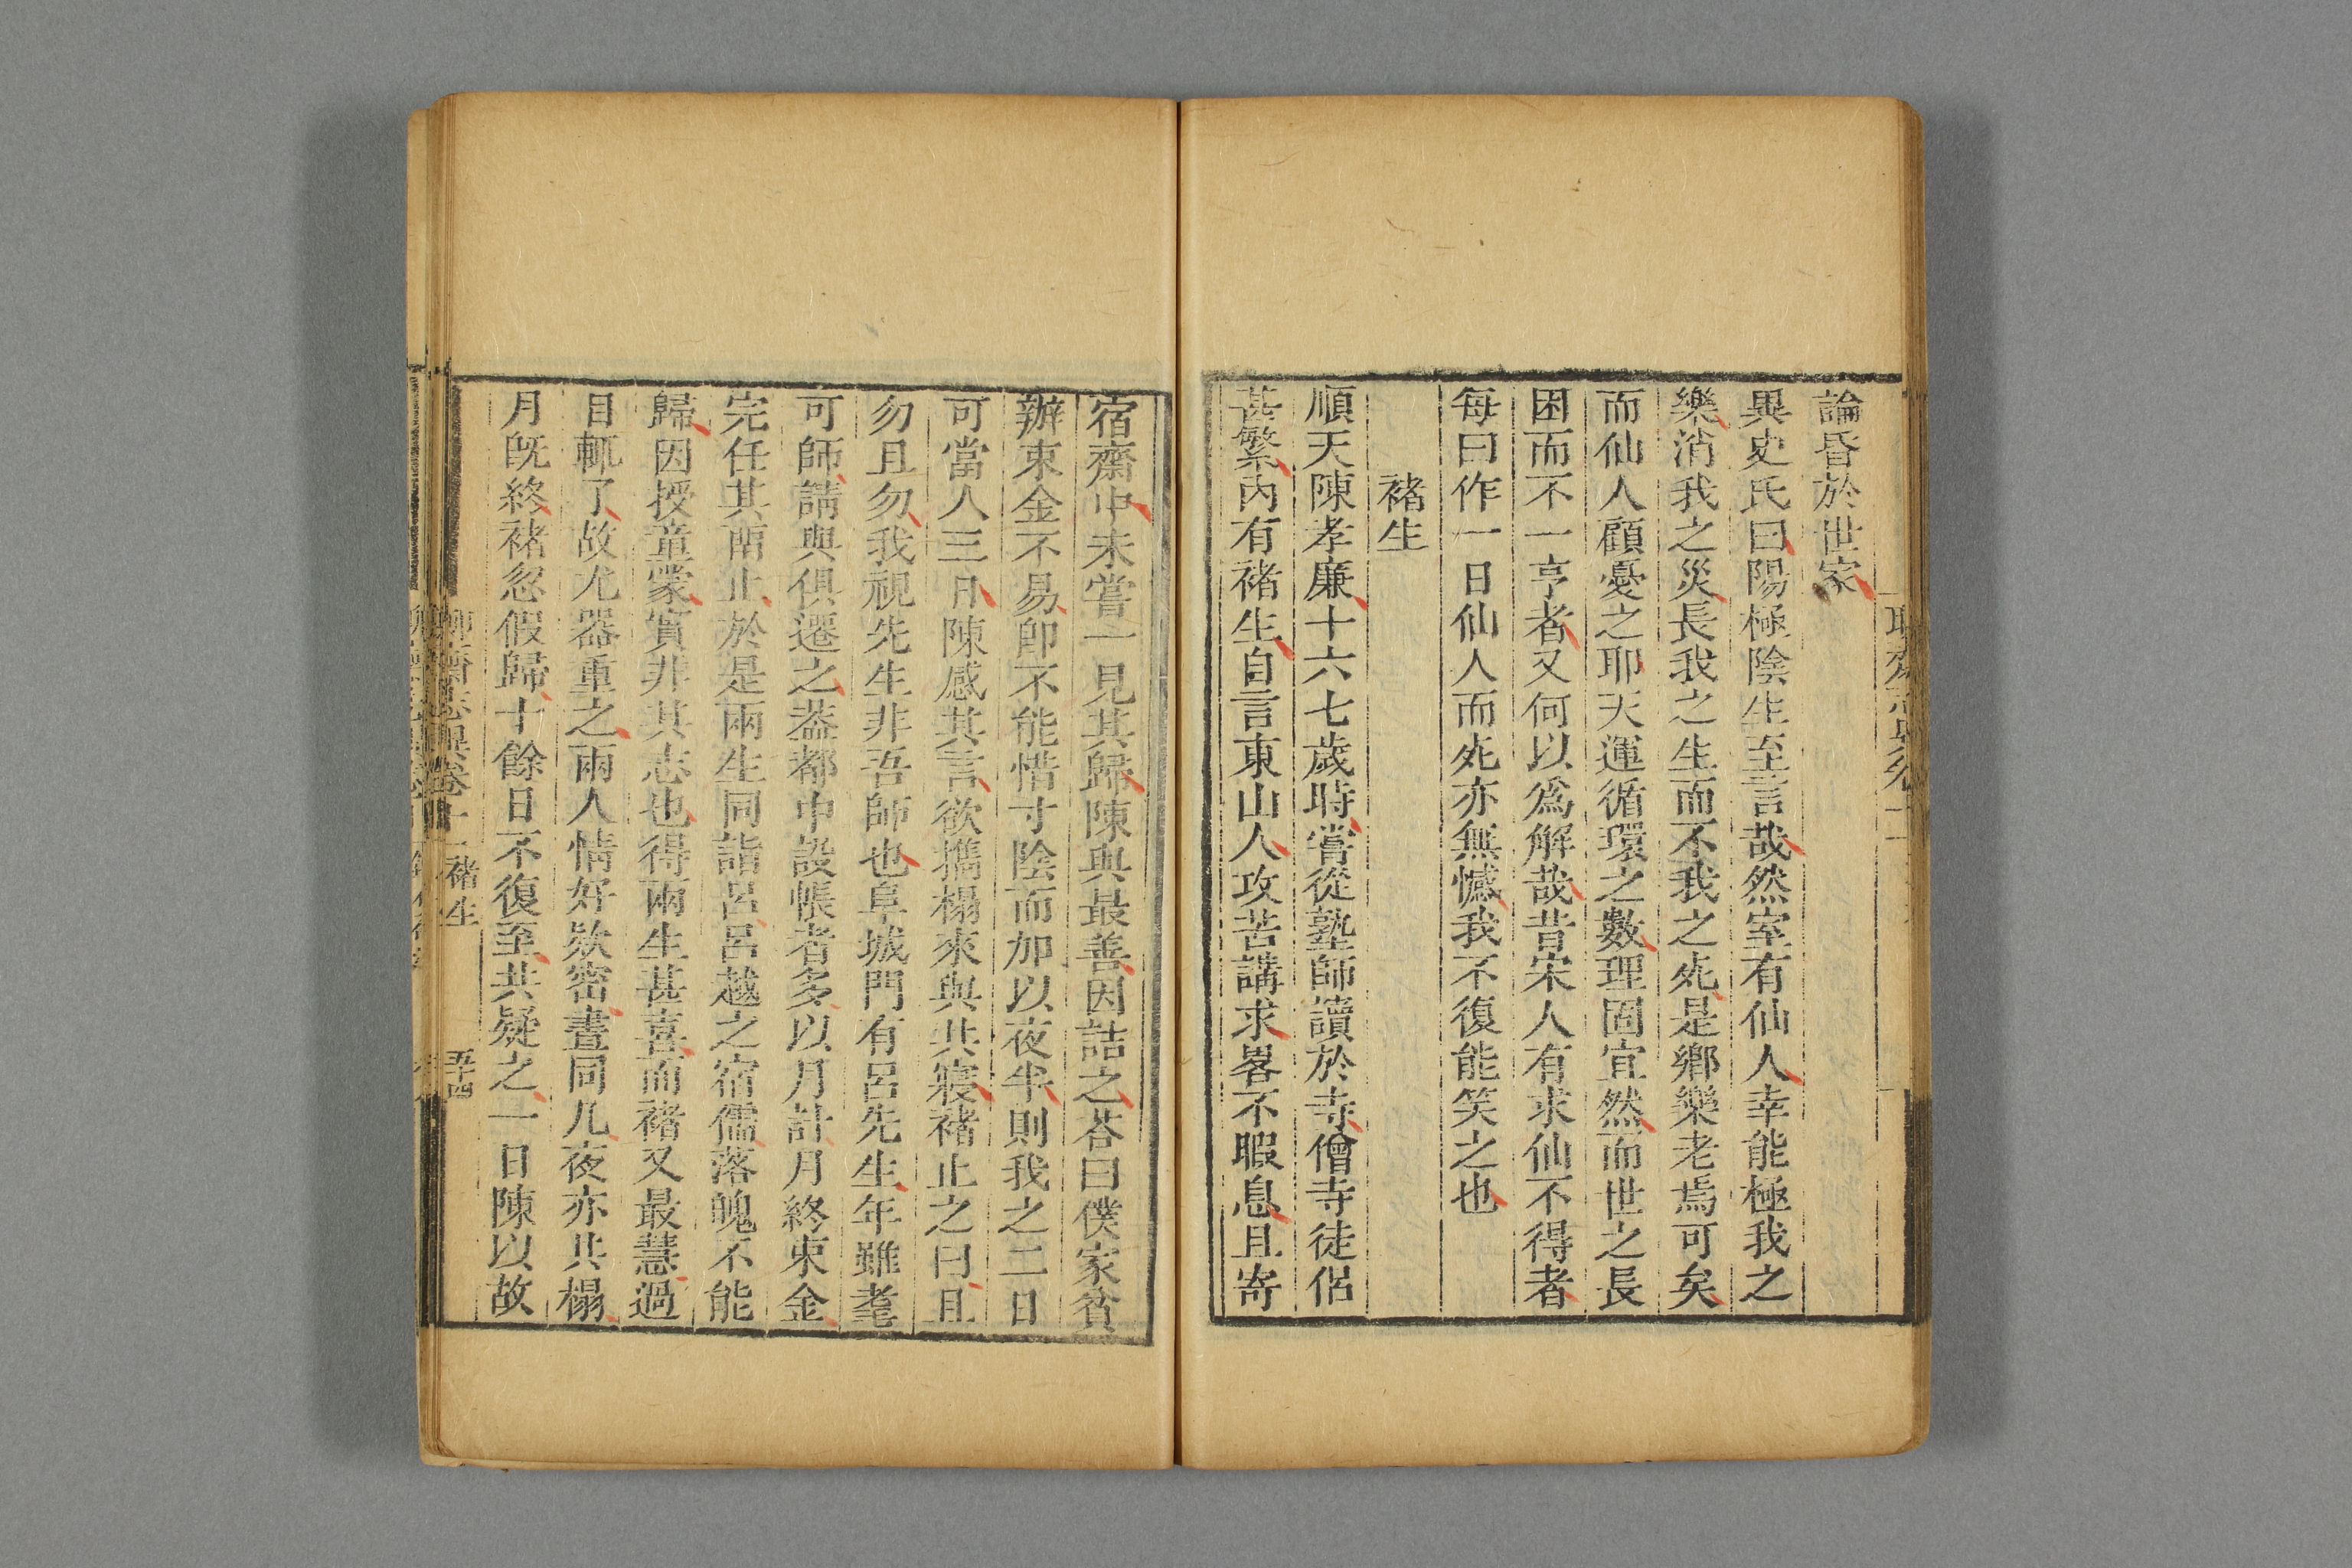 論昏於世家
異史氏曰陽極陰生至言哉然室有仙人幸能極我之
樂消我之災長我之生而不我之死是鄉樂老焉可矣
而仙人顧憂之耶天運循環之數理固宜然而世之長
困而不一亨者又何以爲解哉昔宋人有求仙不得者
每曰作一日仙人而死亦無憾我不復能笑之也
褚生
順天陳孝廉十六七歲時嘗從塾師讀於寺僧寺徒侶
甚繁內有褚生自言東山人攻苦講求畧不暇息且寄
宿齋中未嘗一見其歸陳與最善因詰之荅曰僕家貧
辦束金不易卽不能惜寸陰而加以夜半則我之二日
可當人三日陳感其言欲攜榻來與共寢褚止之曰且
勿且勿我視先生非吾師也阜城門有呂先生年雖耄
可師請與俱遷之葢都中設帳者多以月計月終束金
完任其留止於是兩生同詣呂呂越之宿儒落魄不能
歸因授童蒙實非其志也得兩生甚喜而褚又最慧過
目輒了故尤器重之兩人情好欵密晝同几夜亦共榻
月既終褚忽假歸十餘日不復至共疑之一日陳以故
聊齋志異卷十一 褚生 五十四